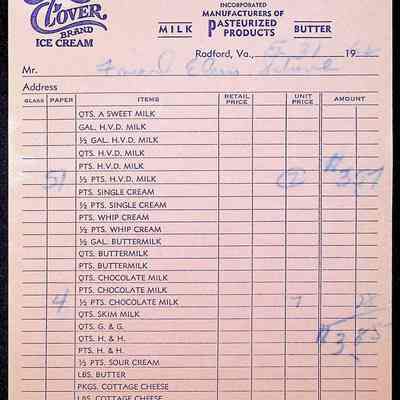 CLOVER
BRAND
ICE CREAM
INCORPORATED
MANUFACTURERS OF
MILK PASTEURIZED PRODUCTS BUTTER
Radford, Va., 19
Mr.
Address
GLASS PAPER ITEMS RETAIL PRICE UNIT PRICE AMOUNT
QTS. A SWEET MILK
GAL. H.V.D. MILK
½ GAL. H.V.D. MILK
QTS. H.V.D. MILK
PTS. H.V.D. MILK
51 ½ PTS. H.V.D. MILK 7 $3.57
PTS. SINGLE CREAM
½ PTS. SINGLE CREAM
PTS. WHIP CREAM
½ PTS. WHIP CREAM
½ GAL. BUTTERMILK
QTS. BUTTERMILK
PTS. BUTTERMILK
QTS. CHOCOLATE MILK
PTS. CHOCOLATE MILK
4 ½ PTS. CHOCOLATE MILK 7 28
QTS. SKIM MILK
QTS. G. & G. $3.85
QTS. H. & H.
PTS. H. & H.
½ PTS. SOUR CREAM
LBS. BUTTER
PKGS. COTTAGE CHEESE
LBS. COTTAGE CHEESE